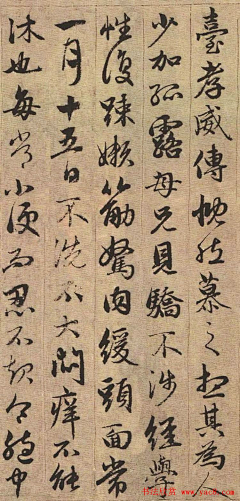 臺孝威傳慨然慕之想其為人
少加孤露母兄見驕不涉經學
性復疎嬾筋駑肉緩頭面常
一月十五日不洗不大悶癢不能
沐也每常小便而忍不起令胞中